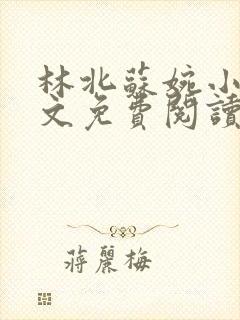 林北蘇婉小
文免費閱讀
蔣麗梅